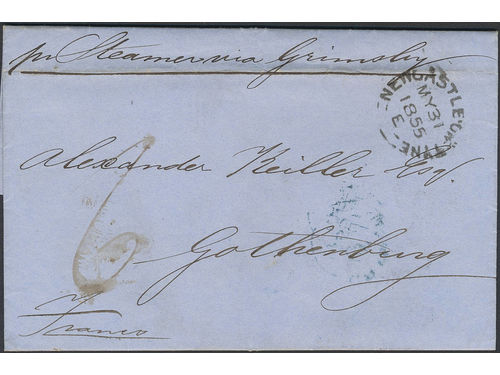 pr Steamer via Grimsby
NEWCASTLE ON TYNE
MY 31
1855
E
Alexander Keiller Esqr.
6
Gothenburg
Franco